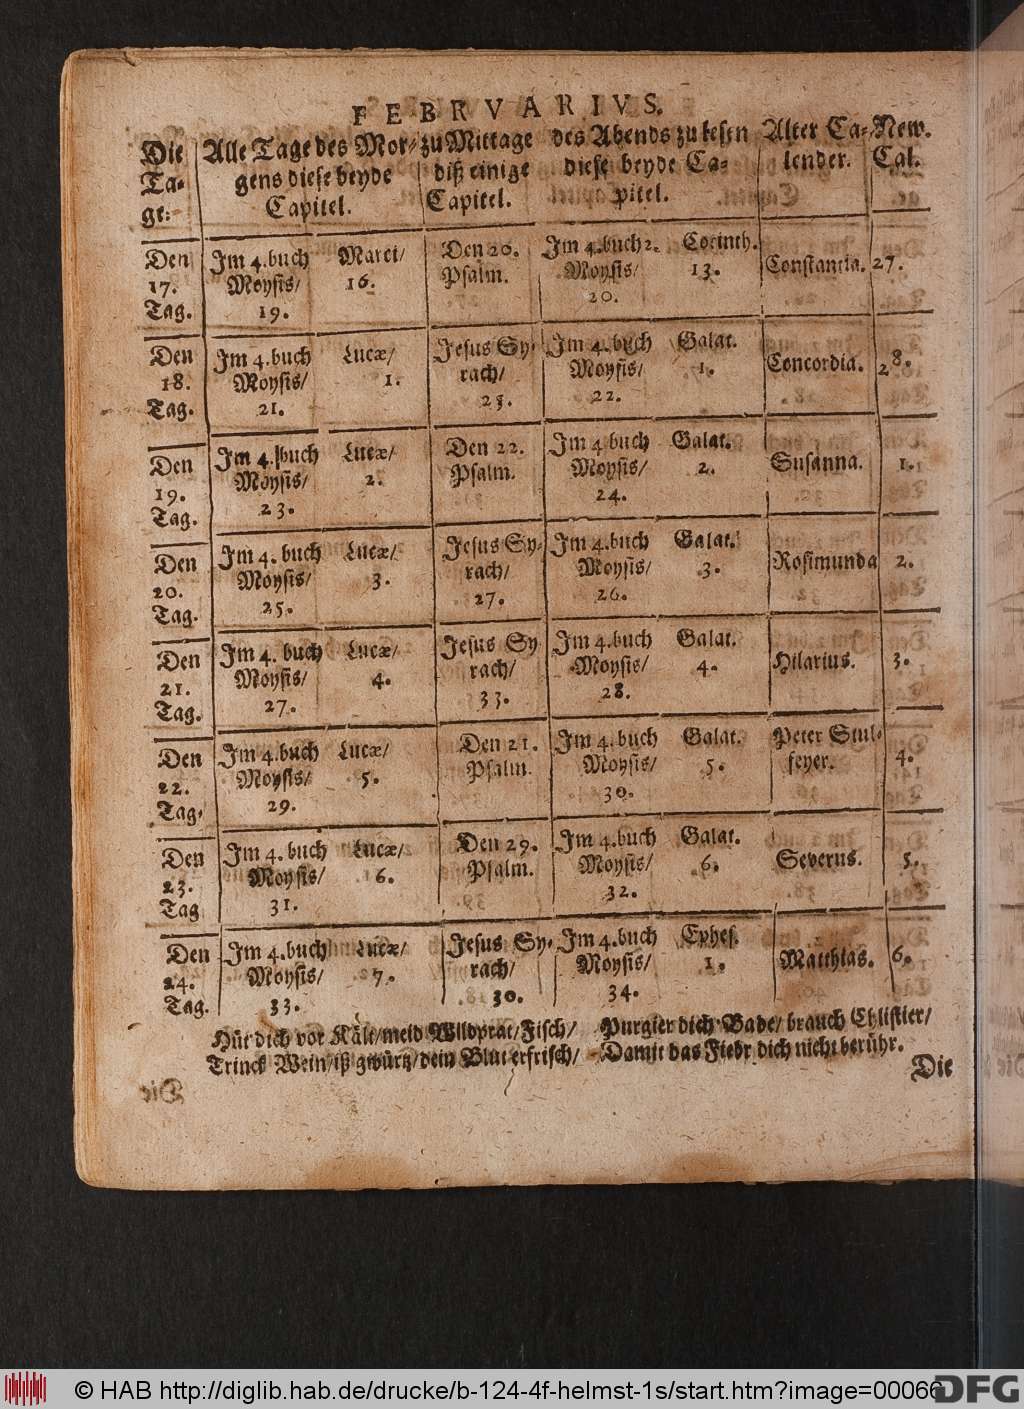 FEBRVARIVS.
Die Alle Tage des Mor- zu Mittage des Abends zu lesen Alter Ca- New.
Ta- gens diese beyde diß einige diese beyde Ca- lender. Cal.
ge: Capitel. Capitel. pitel.
Den Im 4.buch Marci/ Den 20. Im 4.buch 2. Corinth.
17. Moysis/ 16. Psalm. Moysis/ 13. Constantia. 27.
Tag. 19. 20.
Den Im 4.buch Lucæ/ Jesus Sy- Im 4.buch Galat.
18. Moysis/ 1. rach/ Moysis/ 1. Concordia. 28.
Tag. 21. 23. 22.
Den Im 4.buch Lucæ/ Den 22. Im 4.buch Galat.
19. Moysis/ 2. Psalm. Moysis/ 2. Susanna. 1.
Tag. 23. 24.
Den Im 4. buch Lucæ/ Jesus Sy- Im 4.buch Galat.
20. Moysis/ 3. rach/ Moysis/ 3. Rosimunda 2.
Tag. 25. 27. 26.
Den Im 4. buch Lucæ/ Jesus Sy Im 4.buch Galat.
21. Moysis/ 4. rach/ Moysis/ 4. Hilarius. 3.
Tag. 27. 33. 28.
Den Im 4.buch Lucæ/ Den 21. Im 4.buch Galat. Peter Stul-
22. Moysis/ 5. Psalm. Moysis/ 5. feyer. 4.
Tag. 29. 30.
Den Im 4.buch Lucæ/ Den 29. Im 4.buch Galat.
23. Moysis/ 6. Psalm. Moysis/ 6. Severus. 5.
Tag 31. 32.
Den Im 4.buch Lucæ/ Jesus Sy- Im 4.buch Ephes.
24. Moysis/ 7. rach/ Moysis/ 1. Matthias. 6.
Tag. 33. 30. 34.
Hüt dich vor Kält/ meid Wildprat/ Fisch/ Purgier dich Bade/ brauch Chlistier/
Trinck Wein/ iß gwürtz/ dein Blut erfrisch/ Damit das Fiebr dich nicht berühr.
Die
© HAB http://diglib.hab.de/drucke/b-124-4f-helmst-1s/start.htm?image=00066
DFG